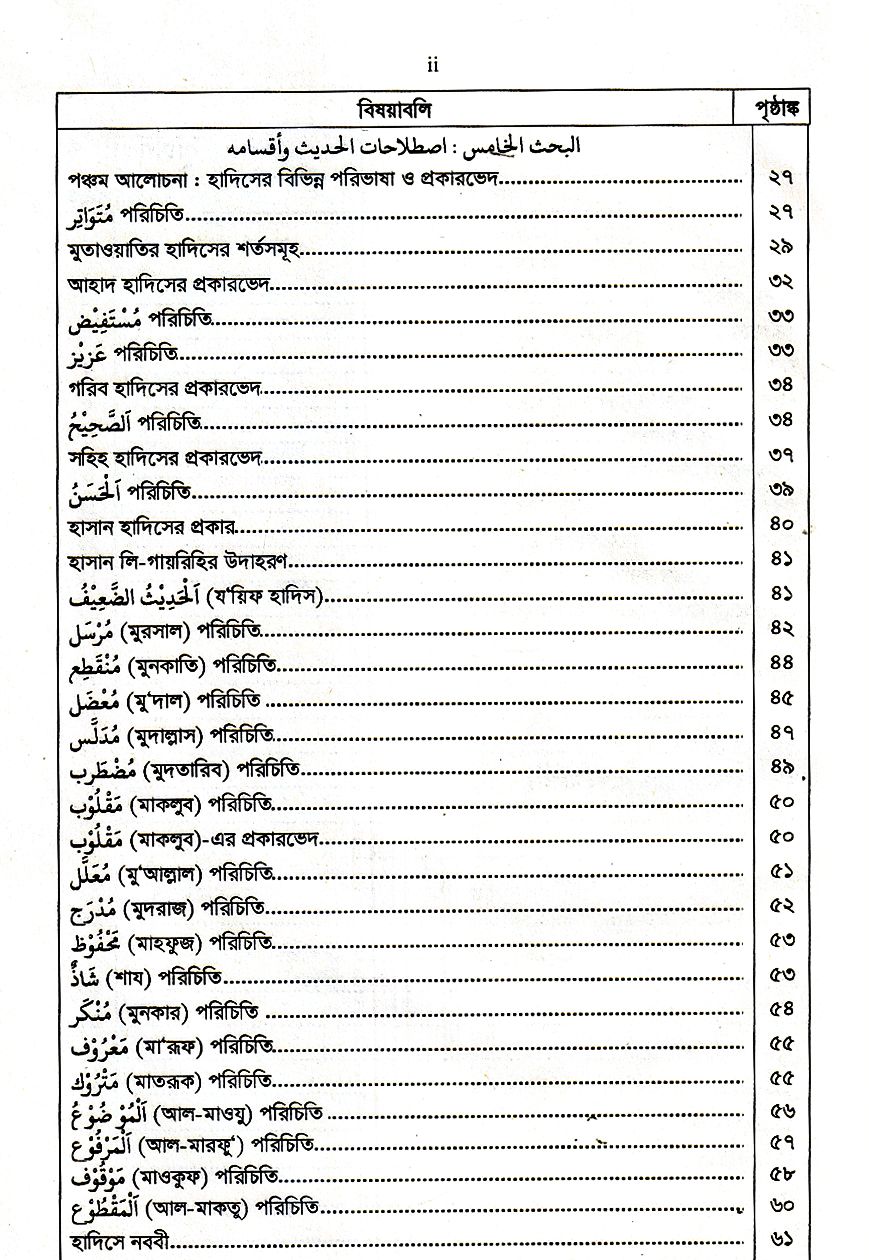 ii
বিষয়াবলি পৃষ্ঠাঙ্ক
البحث الخامس : اصطلاحات الحديث وأقسامه
পঞ্চম আলোচনা : হাদিসের বিভিন্ন পরিভাষা ও প্রকারভেদ ২৭
مُتَوَاتِر পরিচিতি ২৭
মুতাওয়াতির হাদিসের শর্তসমূহ ২৯
আহাদ হাদিসের প্রকারভেদ ৩২
مُسْتَفِيْض পরিচিতি ৩৩
عَزِيْز পরিচিতি ৩৩
গরিব হাদিসের প্রকারভেদ ৩৪
اَلصَّحِيْحُ পরিচিতি ৩৪
সহিহ হাদিসের প্রকারভেদ ৩৭
اَلْحَسَنُ পরিচিতি ৩৯
হাসান হাদিসের প্রকার ৪০
হাসান লি-গায়রিহির উদাহরণ ৪১
اَلْحَدِيْثُ الضَّعِيْفُ (য‘য়িফ হাদিস) ৪১
مُرْسَل (মুরসাল) পরিচিতি ৪২
مُنْقَطِع (মুনকাতি) পরিচিতি ৪৪
مُعْضَل (মু‘দাল) পরিচিতি ৪৫
مُدَلَّس (মুদাল্লাস) পরিচিতি ৪৭
مُضْطَرِب (মুদতারিব) পরিচিতি ৪৯
مَقْلُوْب (মাকলুব) পরিচিতি ৫০
مَقْلُوْب (মাকলুব)-এর প্রকারভেদ ৫০
مُعَلَّل (মু‘আল্লাল) পরিচিতি ৫১
مُدْرَج (মুদরাজ) পরিচিতি ৫২
مَحْفُوْظ (মাহফুজ) পরিচিতি ৫৩
شَاذٌّ (শায) পরিচিতি ৫৩
مُنْكَر (মুনকার) পরিচিতি ৫৪
مَعْرُوْف (মা‘রূফ) পরিচিতি ৫৫
مَتْرُوْك (মাতরূক) পরিচিতি ৫৫
اَلْمُوْضُوْعُ (আল-মাওযু) পরিচিতি ৫৬
اَلْمَرْفُوْع (আল-মারফূ‘) পরিচিতি ৫৭
مَوْقُوْف (মাওকুফ) পরিচিতি ৫৮
اَلْمَقْطُوْع (আল-মাকতূ) পরিচিতি ৬০
হাদিসে নববী ৬১